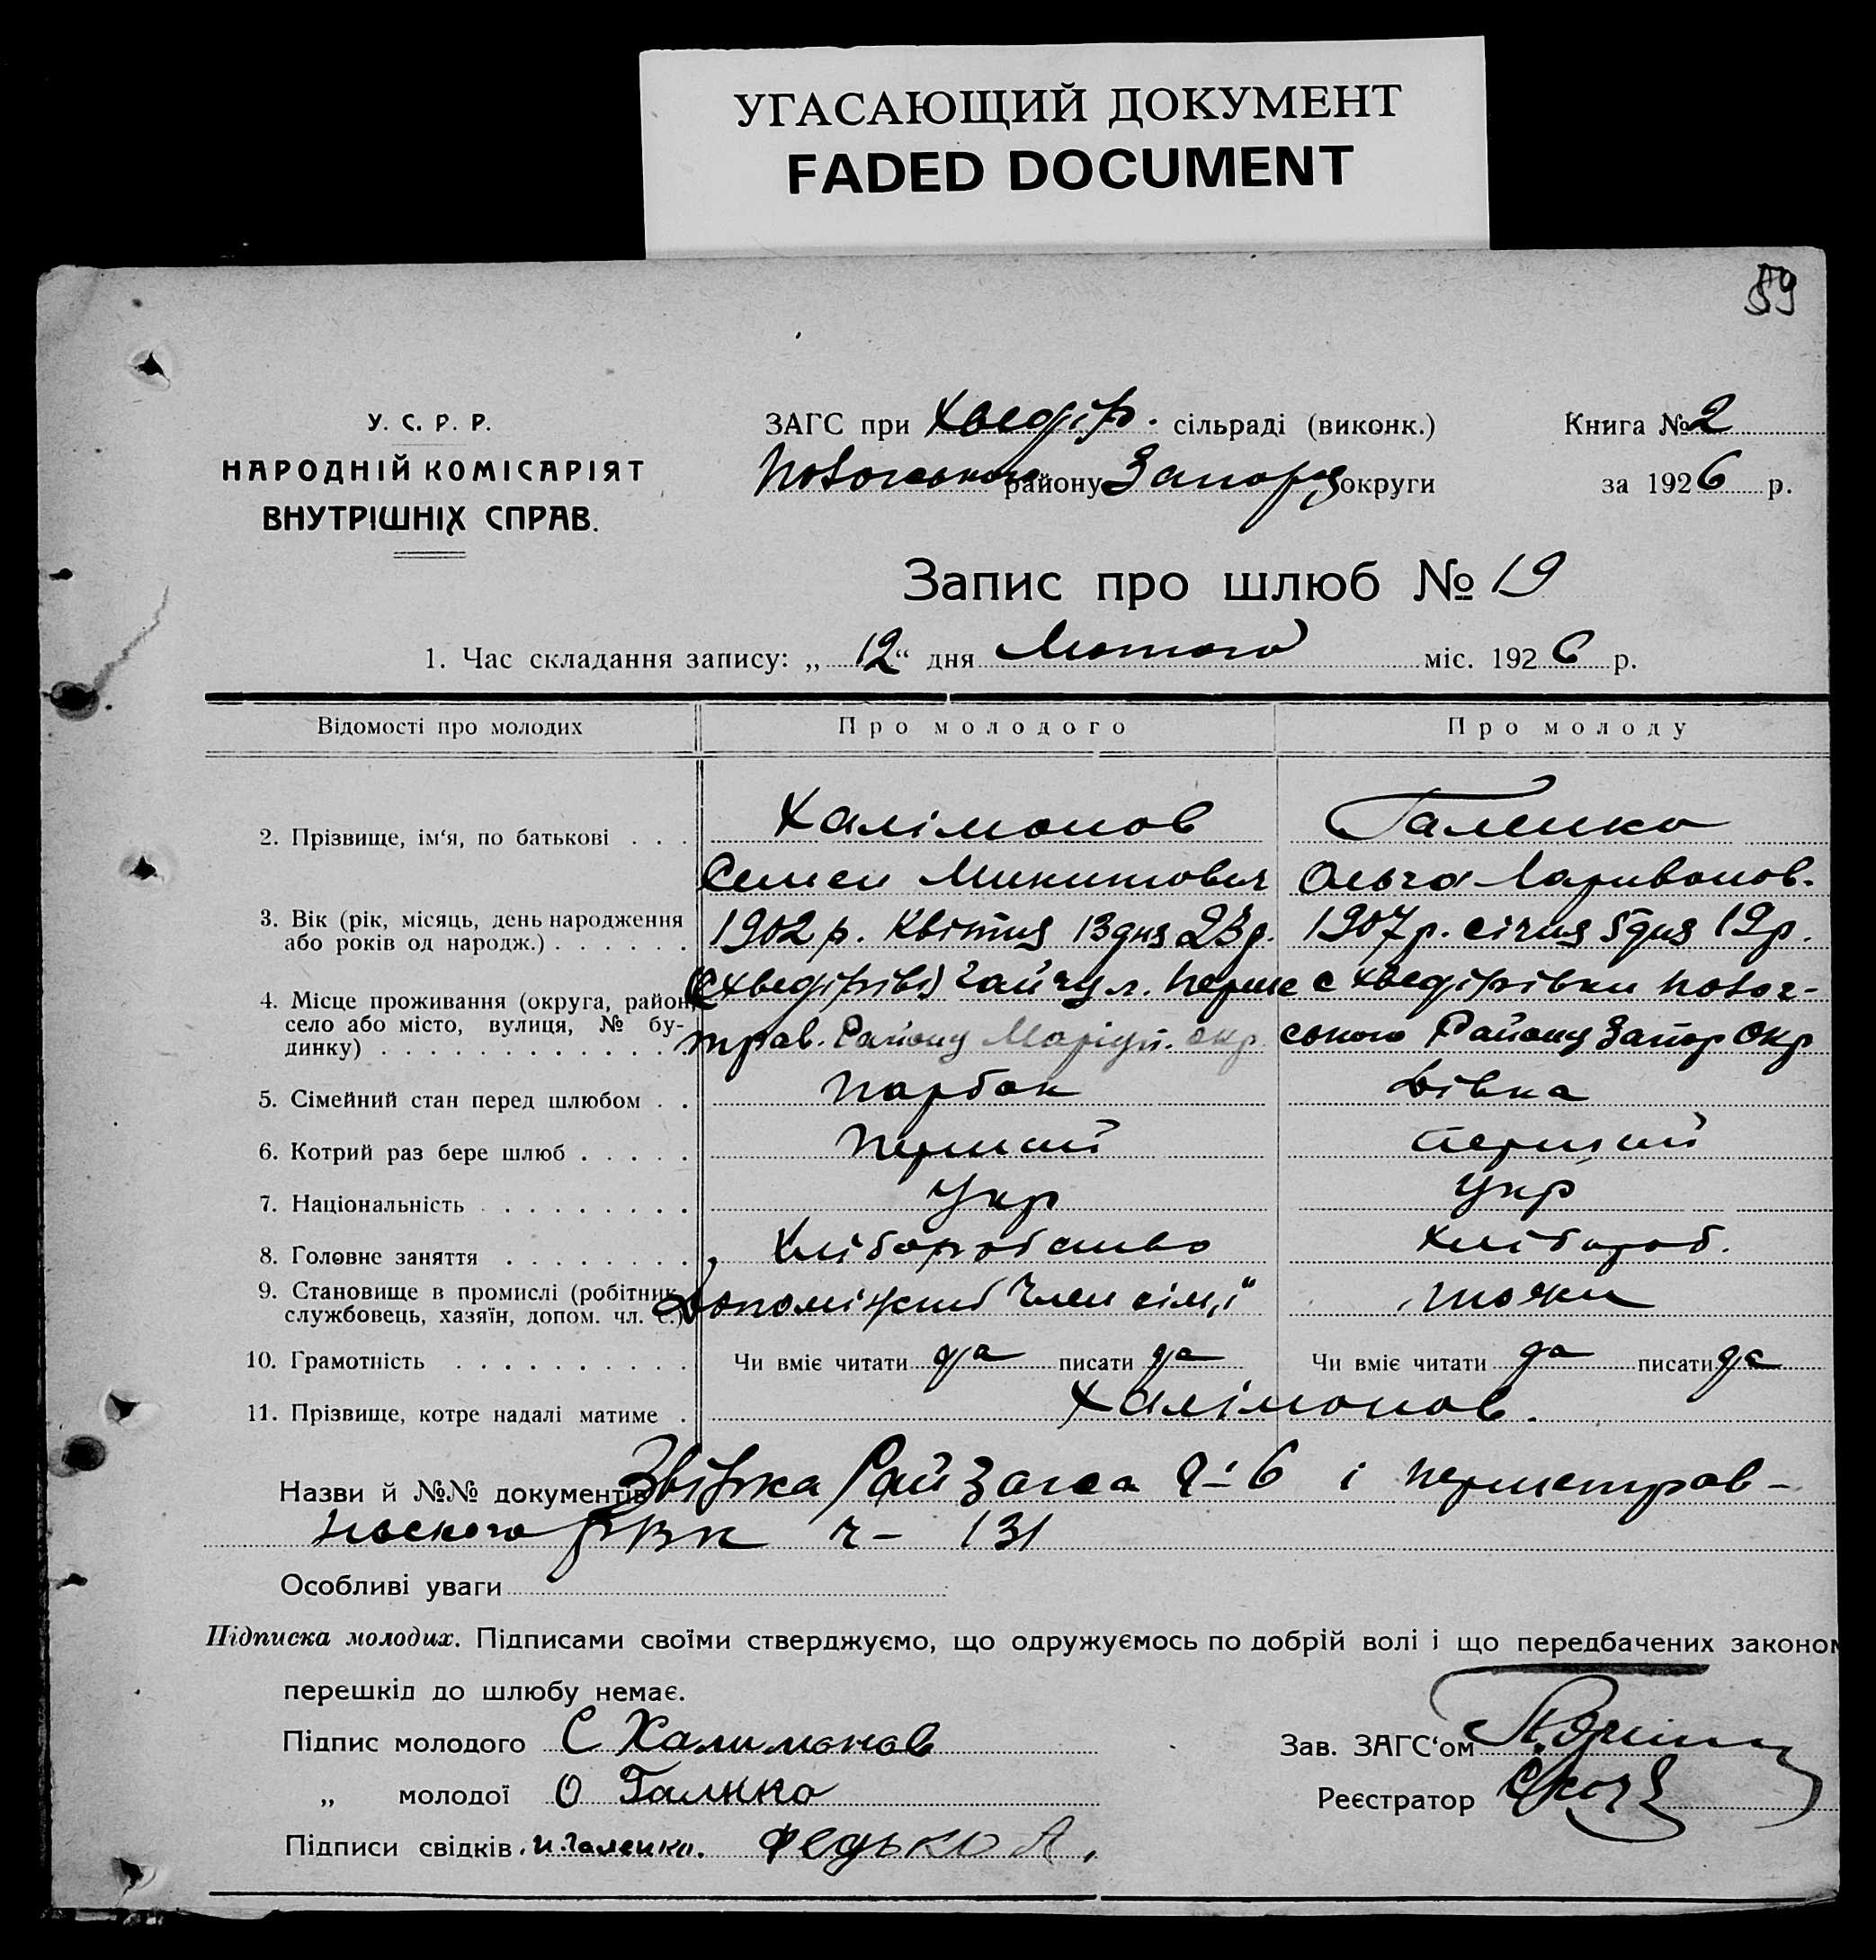 УГАСАЮЩИЙ ДОКУМЕНТ
FADED DOCUMENT
59
У. С. Р. Р.
НАРОДНІЙ КОМІСАРІЯТ
ВНУТРІШНІХ СПРАВ.
ЗАГС при Хведір. сільраді (виконк.)
району Запорз округи
Книга № 2
за 1926 р.
Запис про шлюб № 19
1. Час складання запису: „12“ дня Лютого міс. 1926 р.
Відомості про молодих Про молодого Про молоду
2. Прізвище, ім‘я, по батькові . . . Халімонов Галенко
Семен Микитович Ольга Ларивонов.
3. Вік (рік, місяць, день народження 1902 р. Квітня 13 дня 23 р. 1907 р. січня 5 дня 19 р.
або років од народж.) . . . . . .
4. Місце проживання (округа, район, Хведірівка Гайчул. Перше с Хведірівки
село або місто, вулиця, № бу- трав. Району Маріуп. окр. ського Району Запор Окр
динку) . . . . . . . . . . . . .
5. Сімейний стан перед шлюбом . . Парбок Дівка
6. Котрий раз бере шлюб . . . . . Перший перший
7. Національність . . . . . . . . . Укр Укр
8. Головне заняття . . . . . . . . Хліборобство Хлібороб.
9. Становище в промислі (робітник, Допоміжний Член сім,ї тоже
службовець, хазяїн, допом. чл. с.)
10. Грамотність . . . . . . . . . . Чи вміє читати да писати да Чи вміє читати да писати да
11. Прізвище, котре надалі матиме . Халімонов.
Назви й №№ документів Звірка РайЗагса 6 і першетрав-
ньского РВК ч– 131
Особливі уваги
Підписка молодих. Підписами своїми стверджуємо, що одружуємось по добрій волі і що передбачених законом
перешкід до шлюбу немає.
Підпис молодого С Халимонов
Зав. ЗАГС‘ом
„ молодої О Галнко
Реєстратор
Підписи свідків. И. Галенко. Федько А.